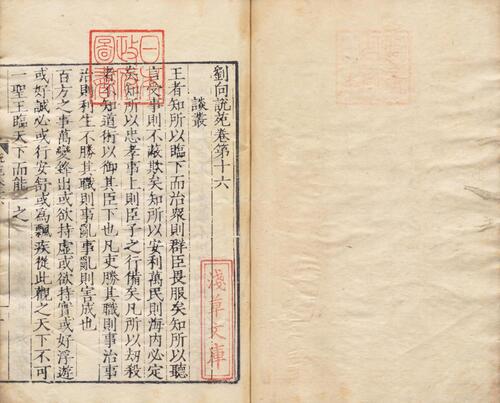 劉向說苑卷第十六
談叢
王者知所以臨下而治眾則群臣畏服矣知所以聽
言受事則不蔽欺矣知所以安利萬民則海內必定
矣知所以忠孝事上則臣子之行備矣凡所以刼殺
者不知道術以御其臣下也凡吏勝其職則事治事
治則利生不勝其職則事亂事亂則害成也
百方之事萬變鋒出或欲持虛或欲持實或好浮遊
或好誠必或行安舒或為飄疾從此觀之天下不可
一聖王臨天下而能一之
淺草文庫
日本政府圖書